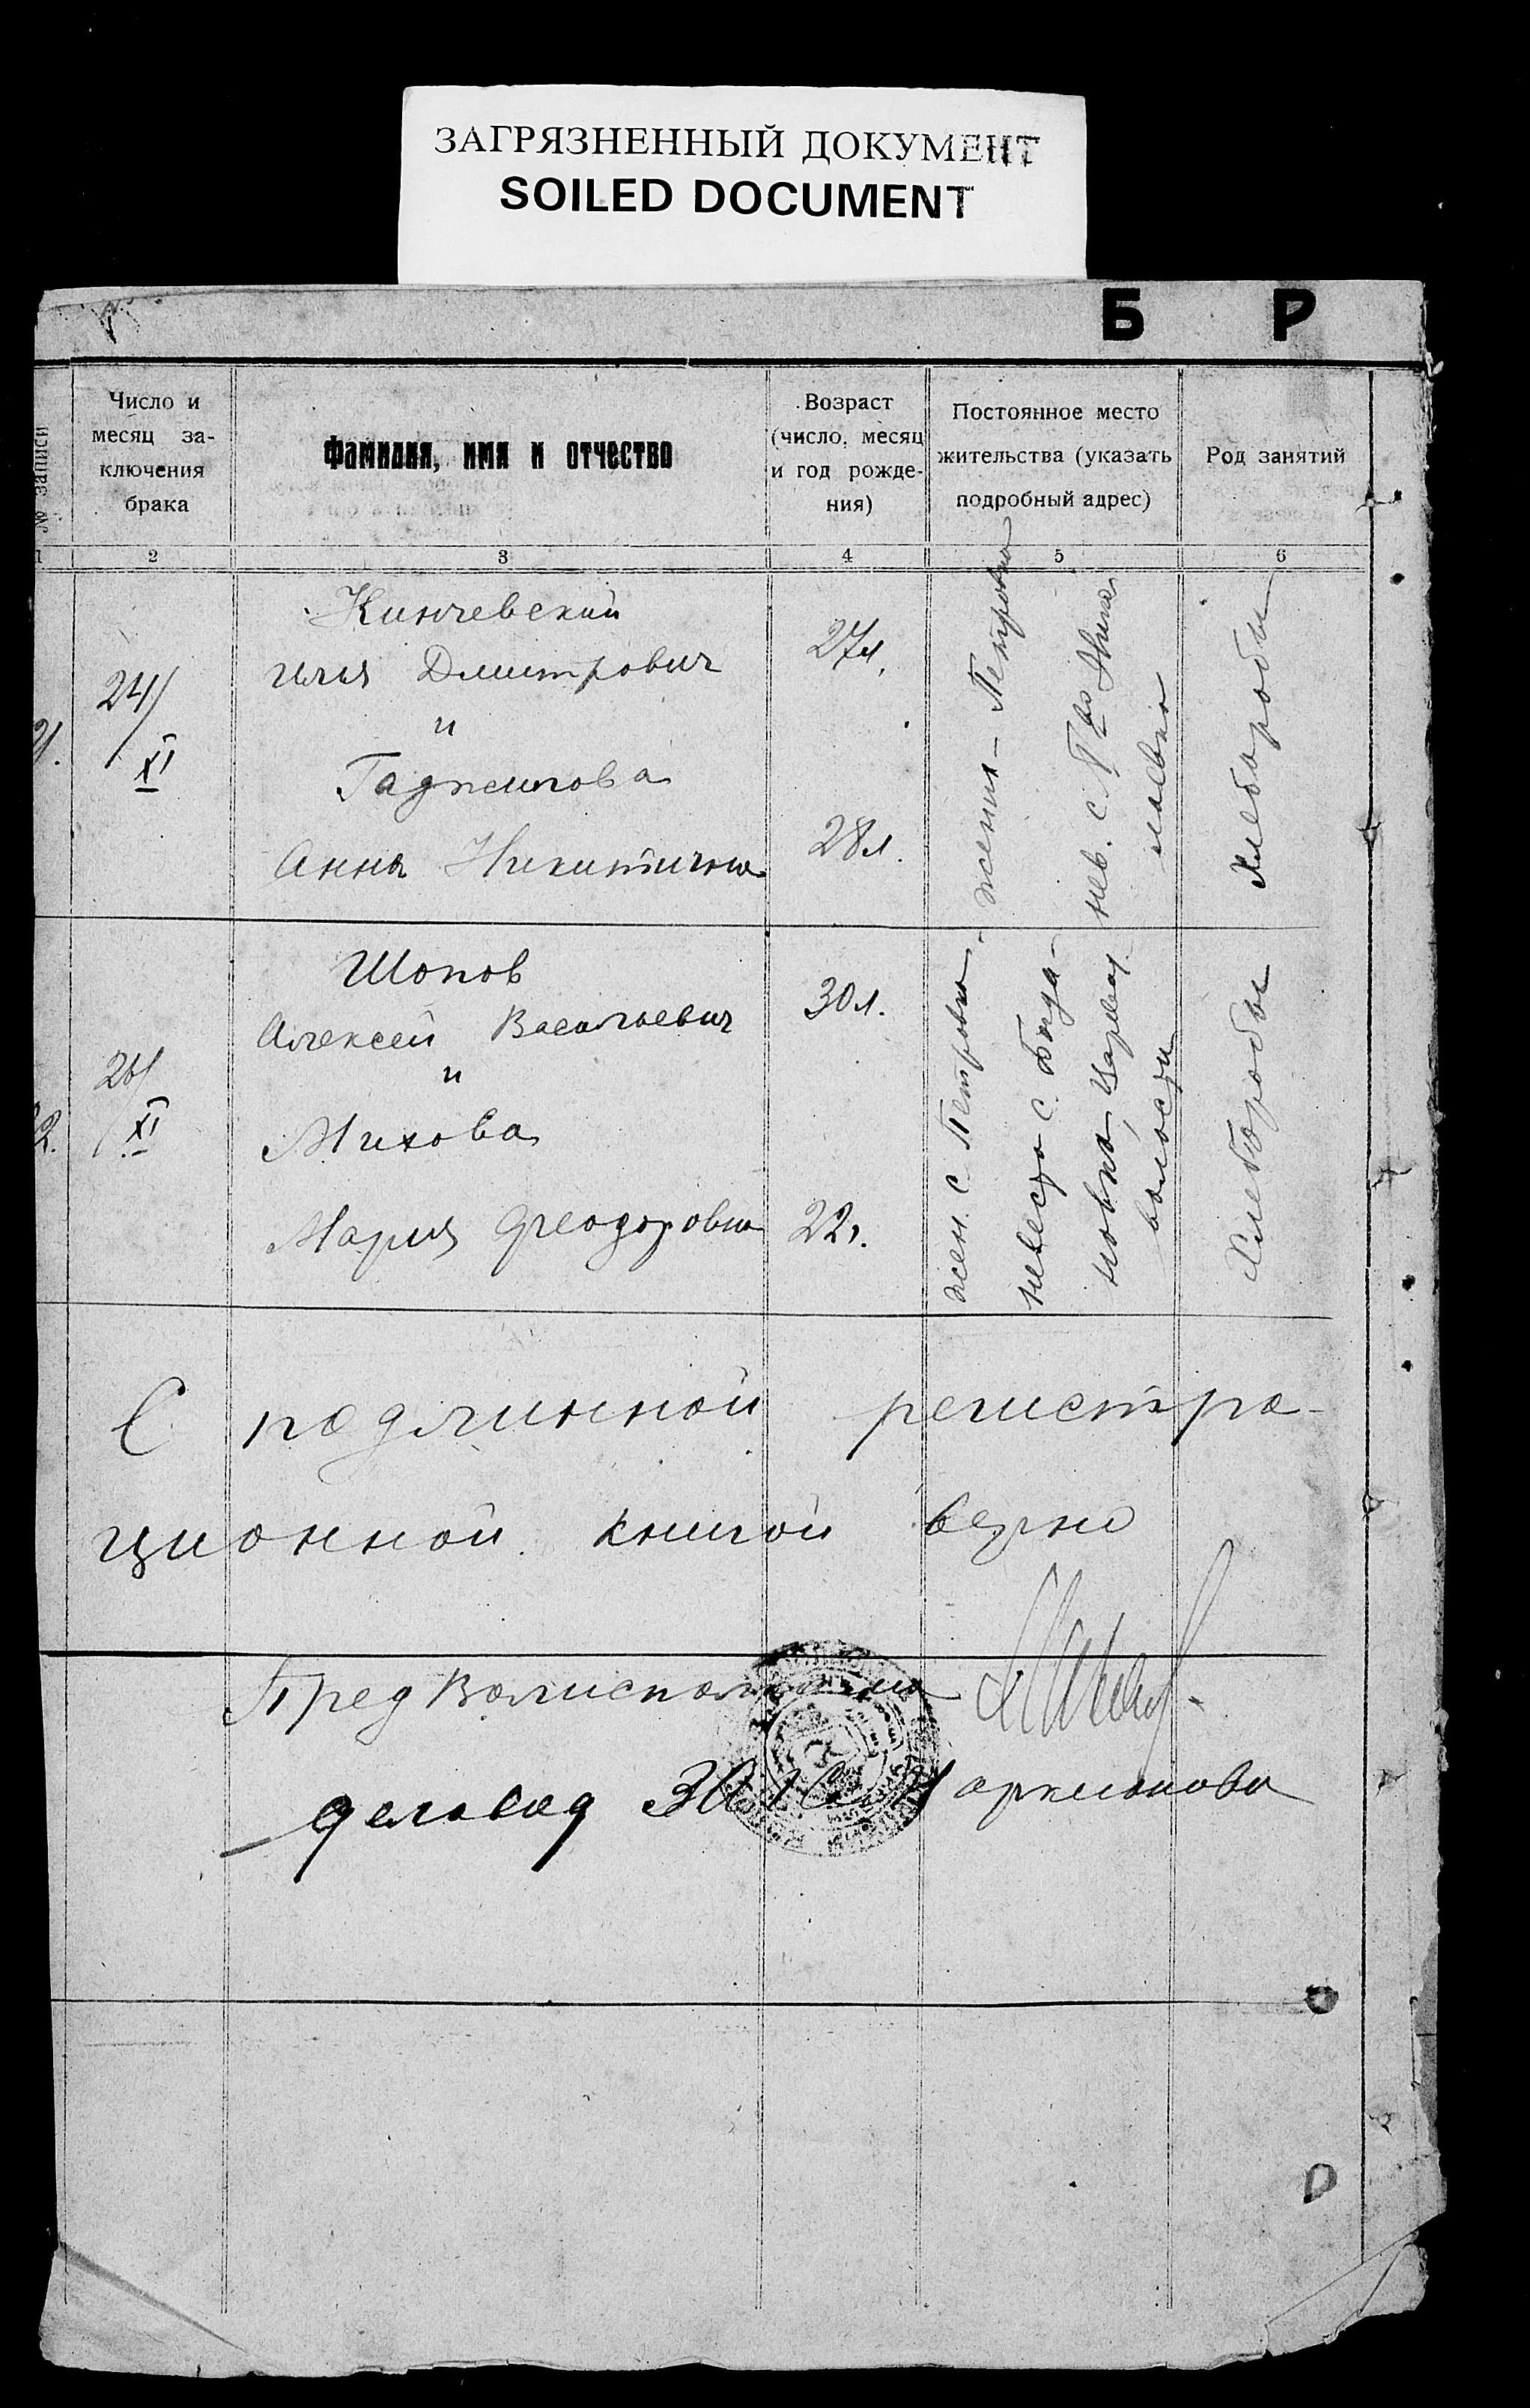 ЗАГРЯЗНЕННЫЙ ДОКУМЕНТ
SOILED DOCUMENT
Б Р
№ записи
Число и
месяц за-
ключения
брака
Фамилия, имя и отчество
Возраст
(число, месяц
и год рожде-
ния)
Постоянное место
жительства (указать
подробный адрес)
Род занятий
1 2 3 4 5 6
24/XI
Кинчевский
Илья Дмитрович
и
Гаджилова
Анна Никитична
27л.
28л.
жених - Петровка
нев. с.
Хлеборобы
2.
26/XI
Шопов
Алексей Васильевич
и
Михова
Мария Феодоровна
30л.
22г.
жен. с. Петровка
невеста с. Богда-
новка,
волости
Хлеборобы
С подлинной регистра-
ционной книгой верно
Пред Волисполкома
деловод ЗАГС